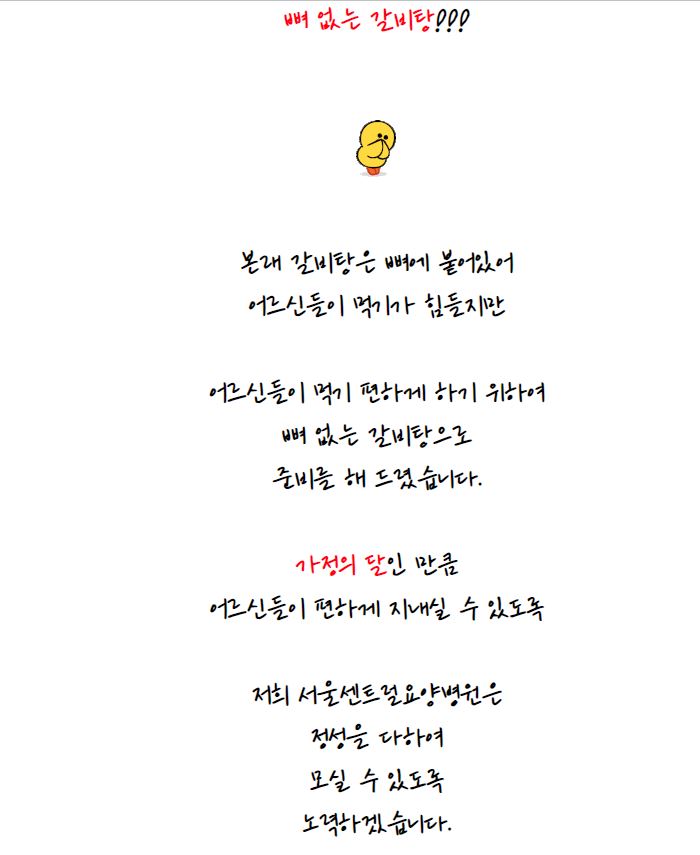 뼈 없는 갈비탕!!!
본래 갈비탕은 뼈에 붙어있어
어르신들이 먹기가 힘들지만
어르신들이 먹기 편하게 하기 위하여
뼈 없는 갈비탕으로
준비를 해 드렸습니다.
가정의 달인 만큼
어르신들이 편하게 지내실 수 있도록
저희 서울센트럴요양병원은
정성을 다하여
모실 수 있도록
노력하겠습니다.